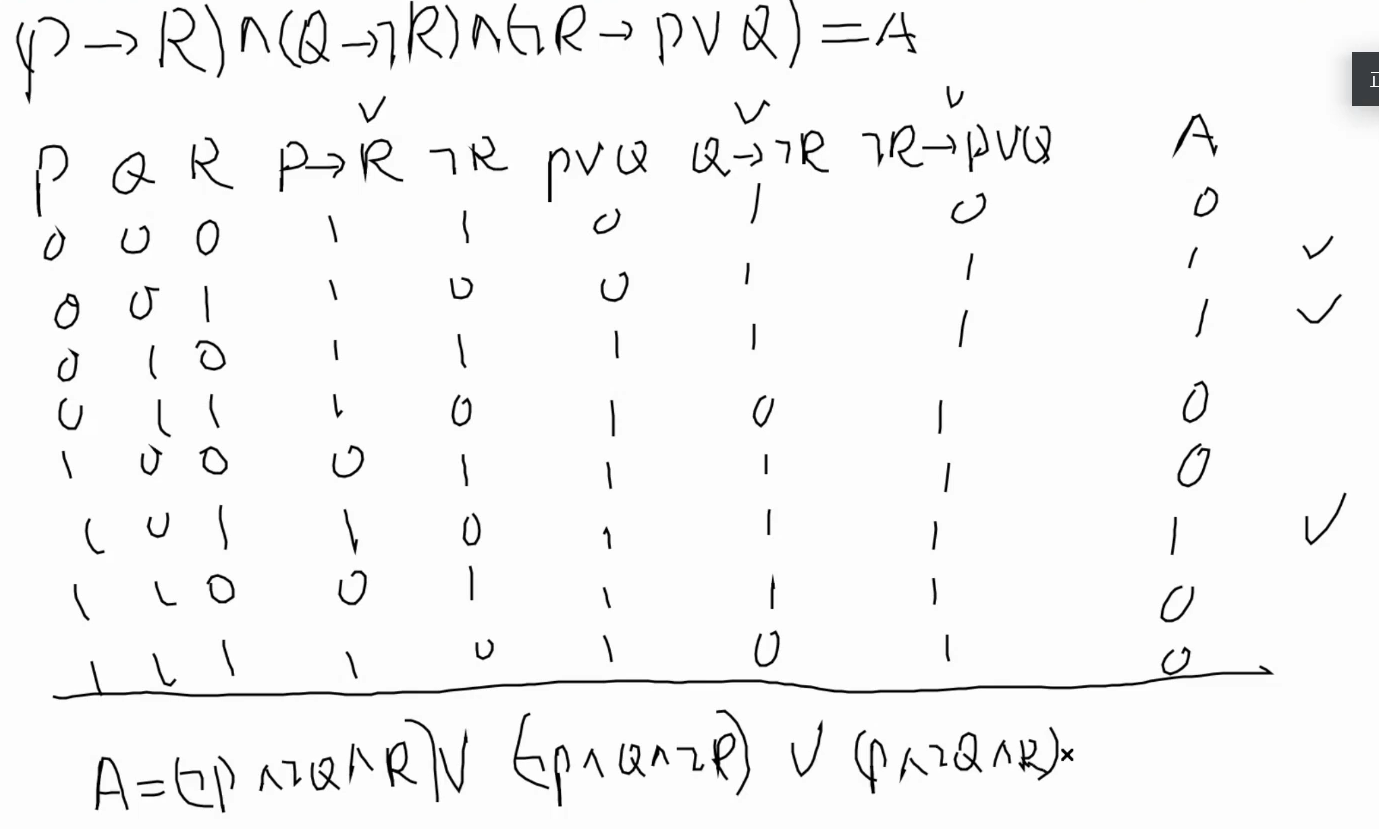 (P→R)∧(Q→¬R)∧(¬R→P∨Q)=A
∨ ∨ ∨
P Q R P→R ¬R P∨Q Q→¬R ¬R→P∨Q A
0 0 0 1 1 0 1 0 0
0 0 1 1 0 0 1 1 1 ✓
0 1 0 1 1 1 1 1 1 ✓
0 1 1 1 0 1 0 1 0
1 0 0 0 1 1 1 1 0
1 0 1 1 0 1 1 1 1 ✓
1 1 0 0 1 1 1 1 0
1 1 1 1 0 1 0 1 0
A=(¬P∧¬Q∧R)∨(¬P∧Q∧¬R)∨(P∧¬Q∧R)×